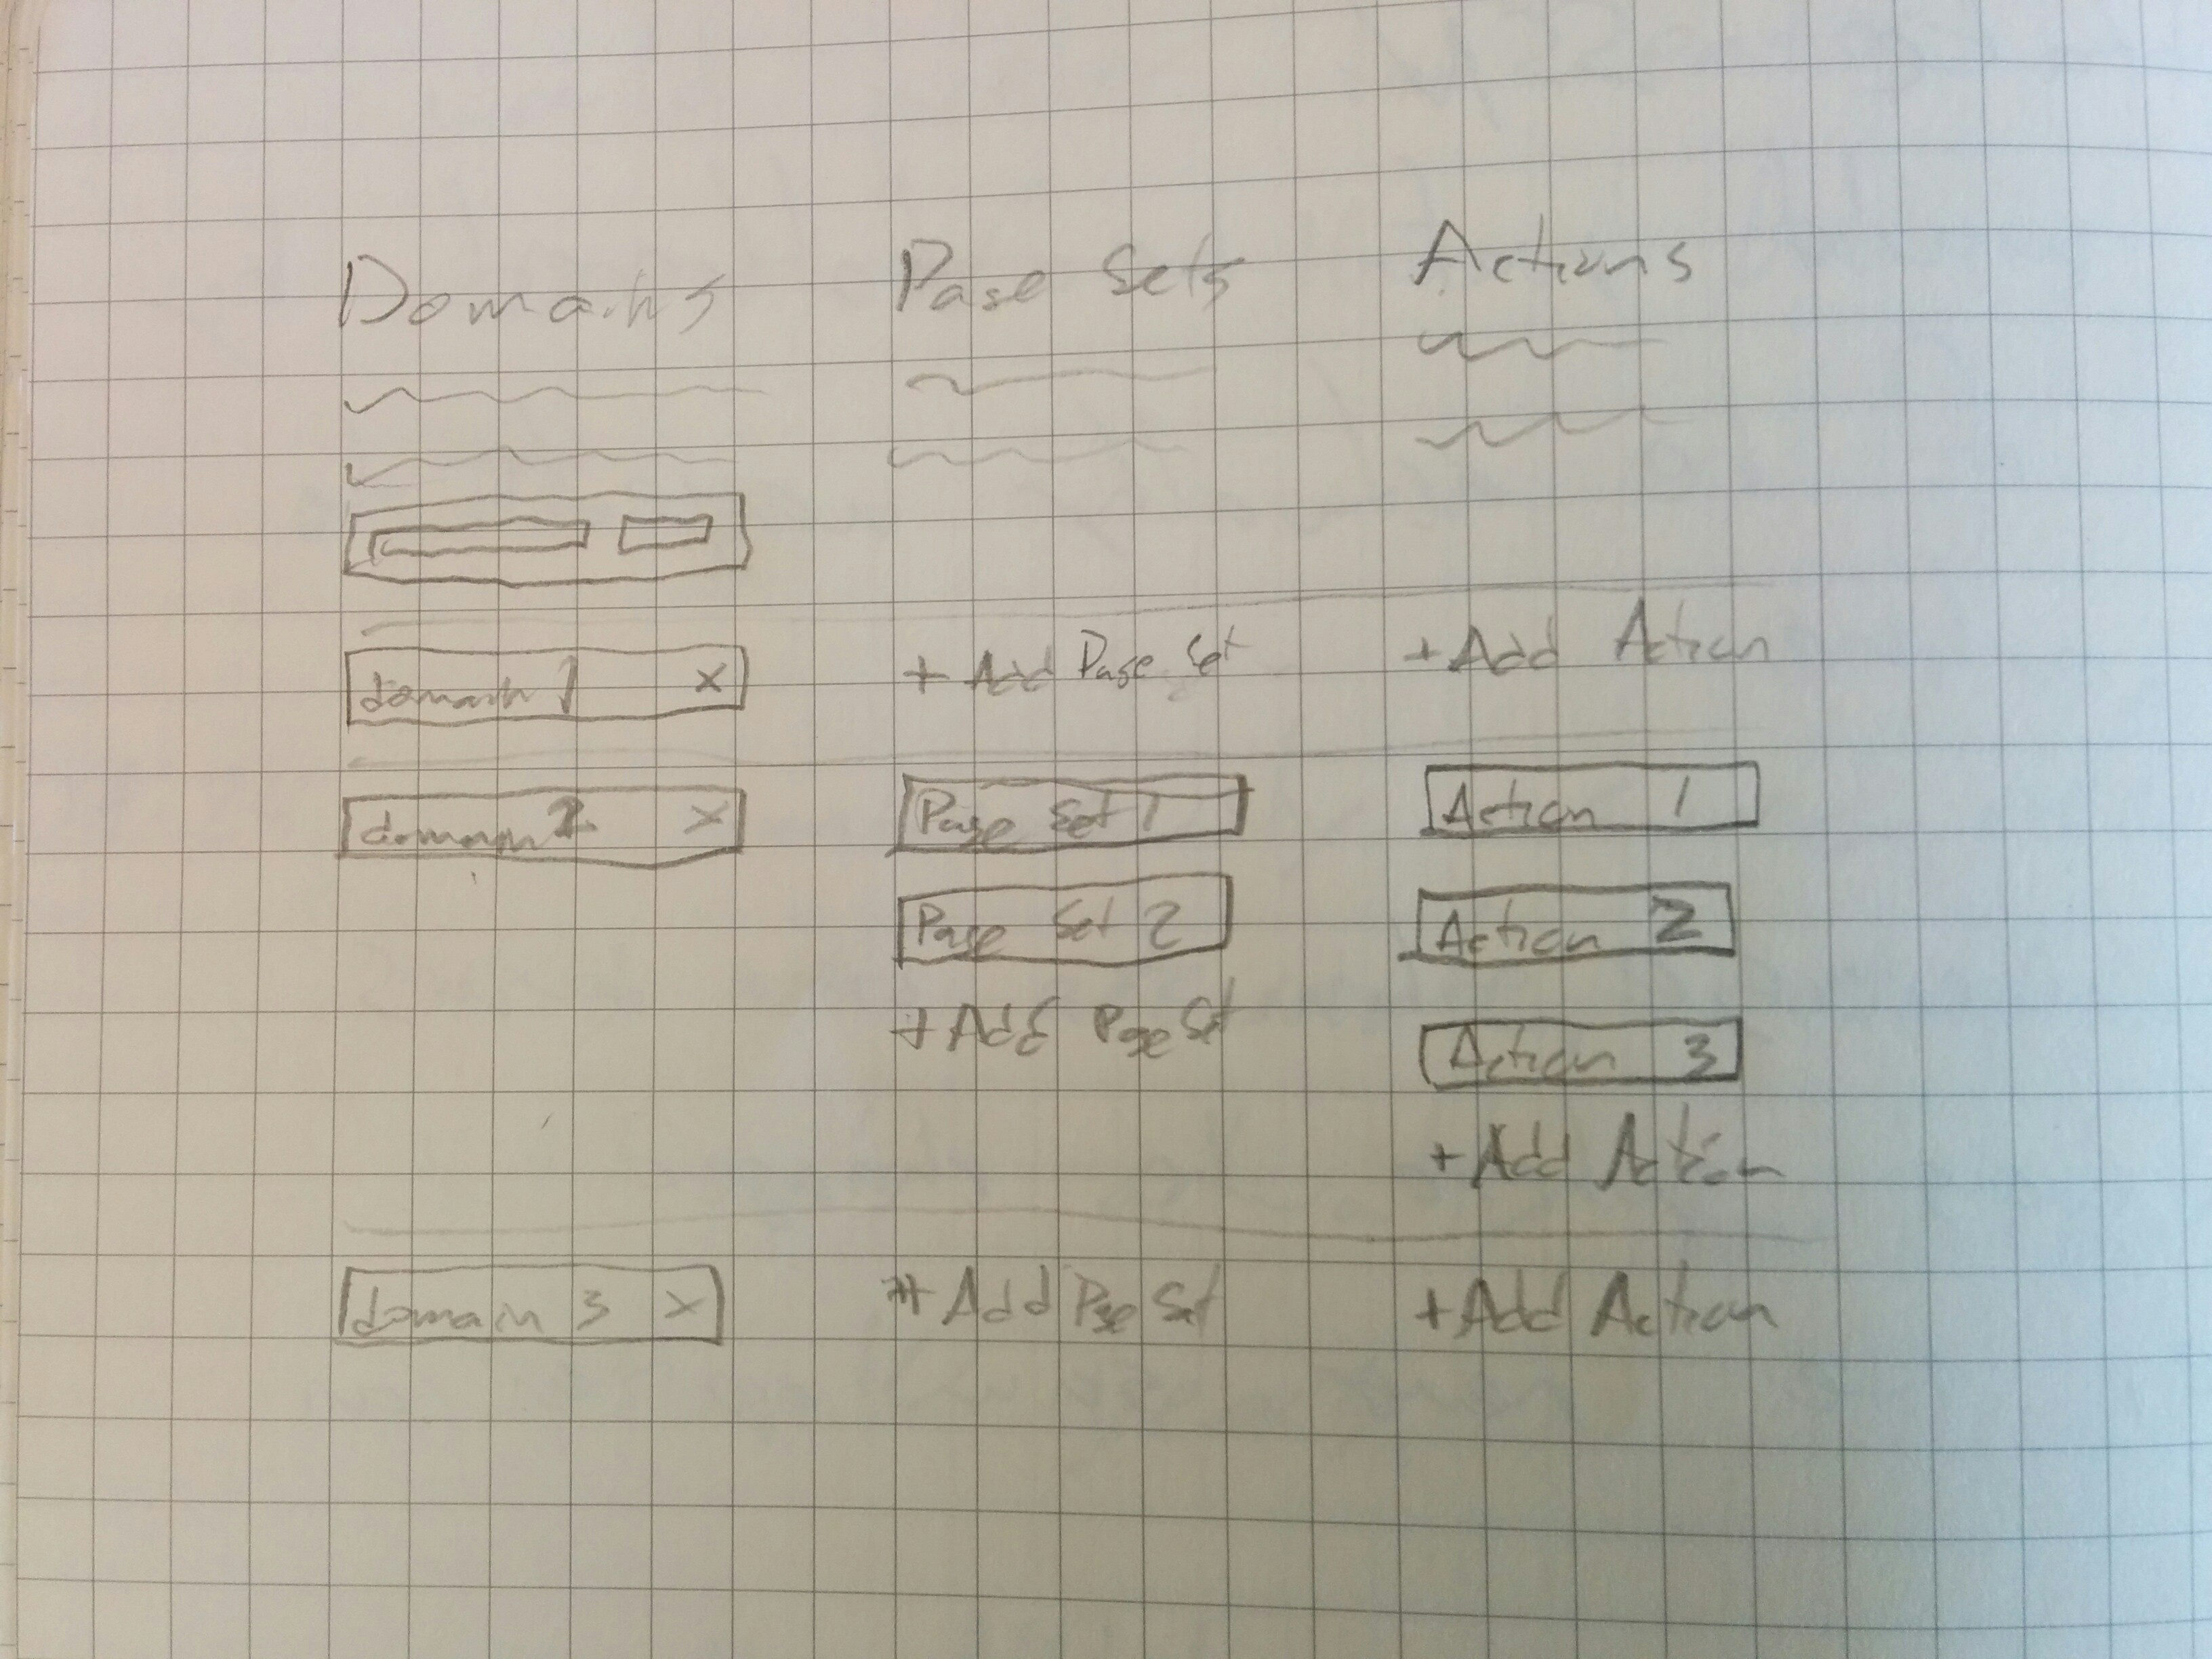 Domains Page Sets Actions
domain 1 x + Add Page Set + Add Action
domain 2 x Page Set 1 Action 1
Page Set 2 Action 2
+ Add Page Set Action 3
+ Add Action
domain 3 x + Add Page Set + Add Action